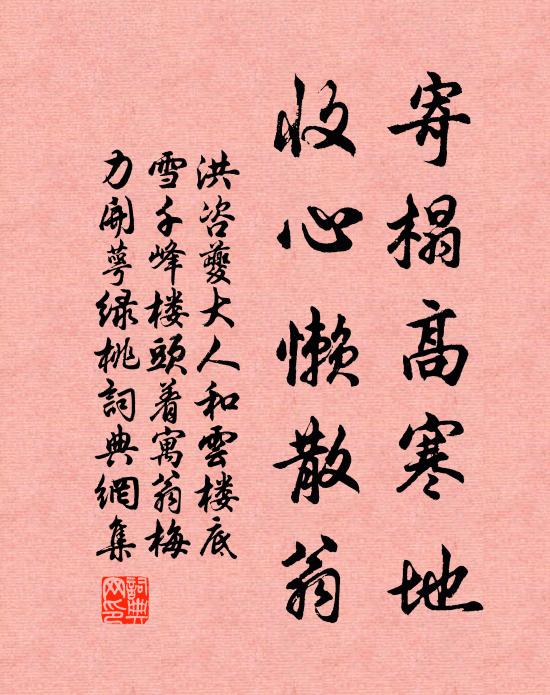 寄榻高寒地
收心懒散翁
洪咨夔大人和雲楼底
雪千峰楼頭着寓翁梅
力開萼绿桃詞典網集
詞典